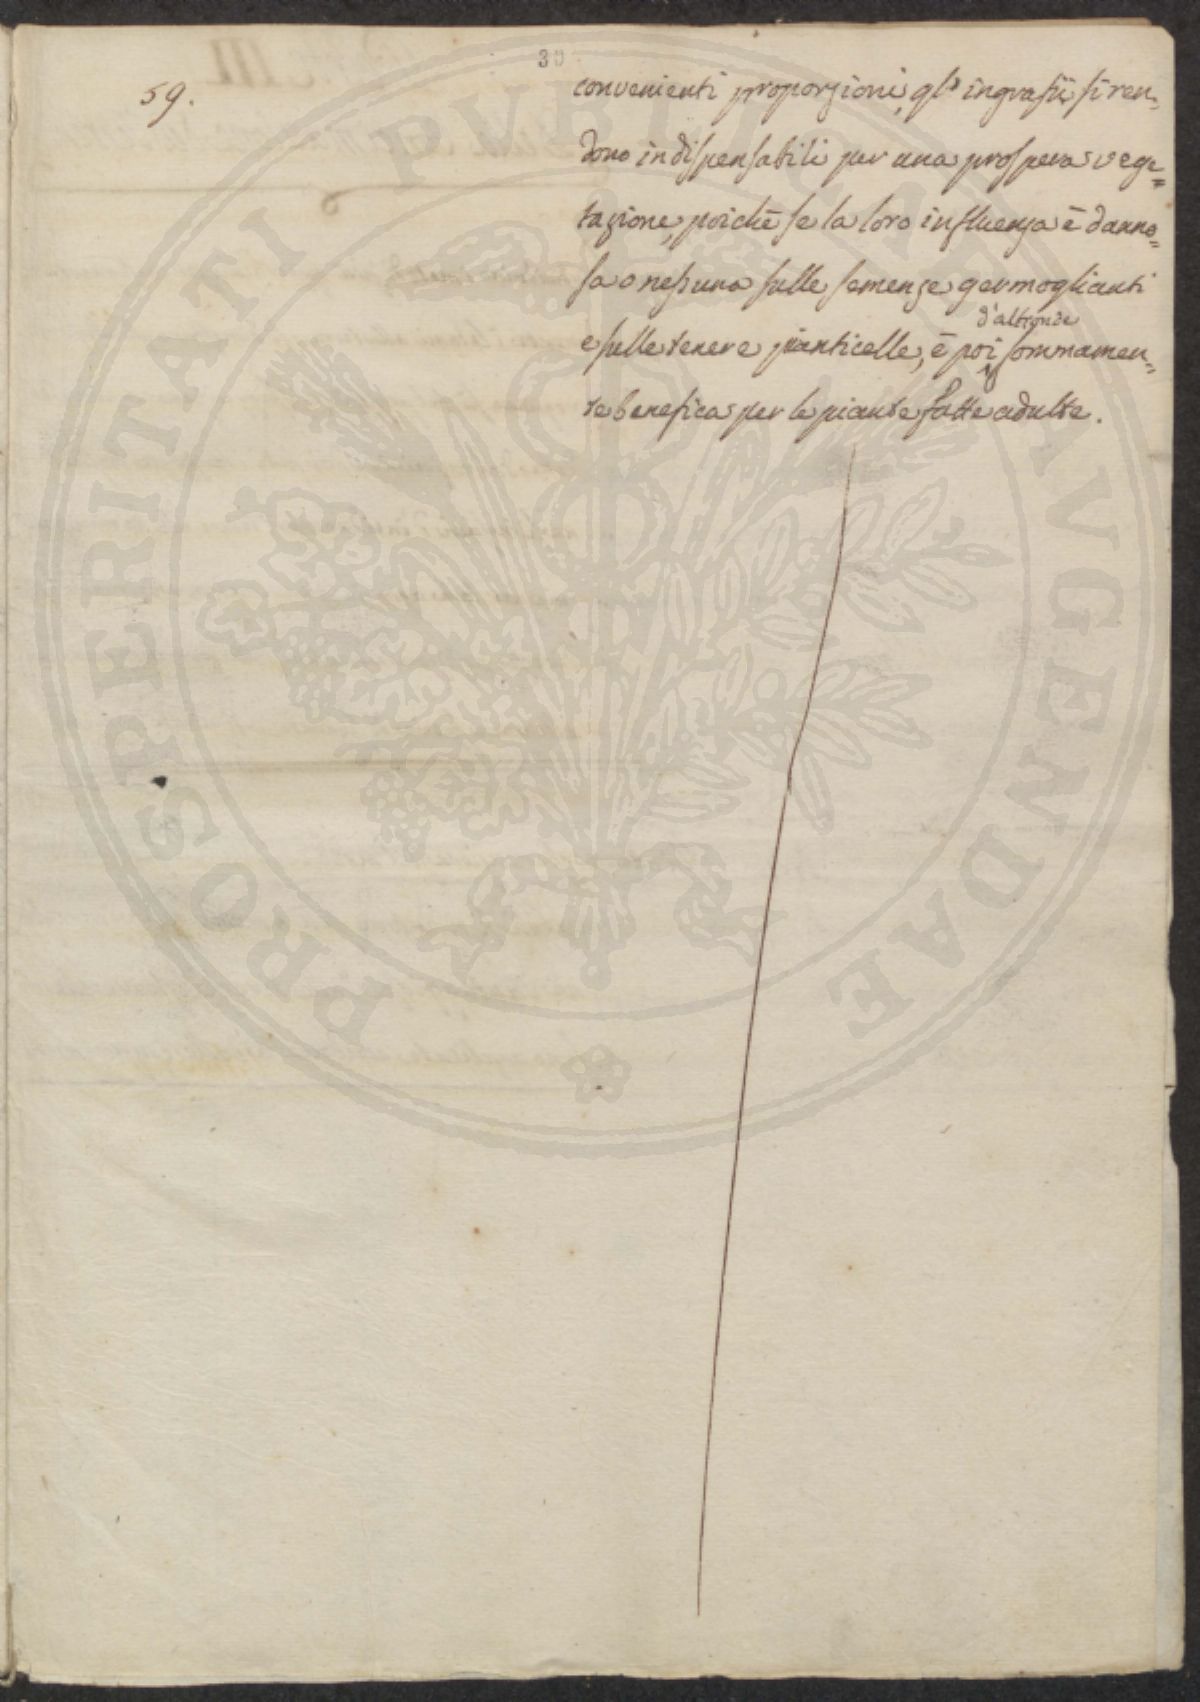 30
59.
convenienti proporzioni, gl' ingrassi si ren=
dono indispensabili per una prospera vege=
tazione, poichè se la loro influenza è danno=
sa o nessuna sulle semenze germoglianti
d'altronde
e sulle tenere pianticelle, è poi sommamen=
te benefica per le piante fatte adulte.
PROSPERITATI PVBLICAE AVGENDAE